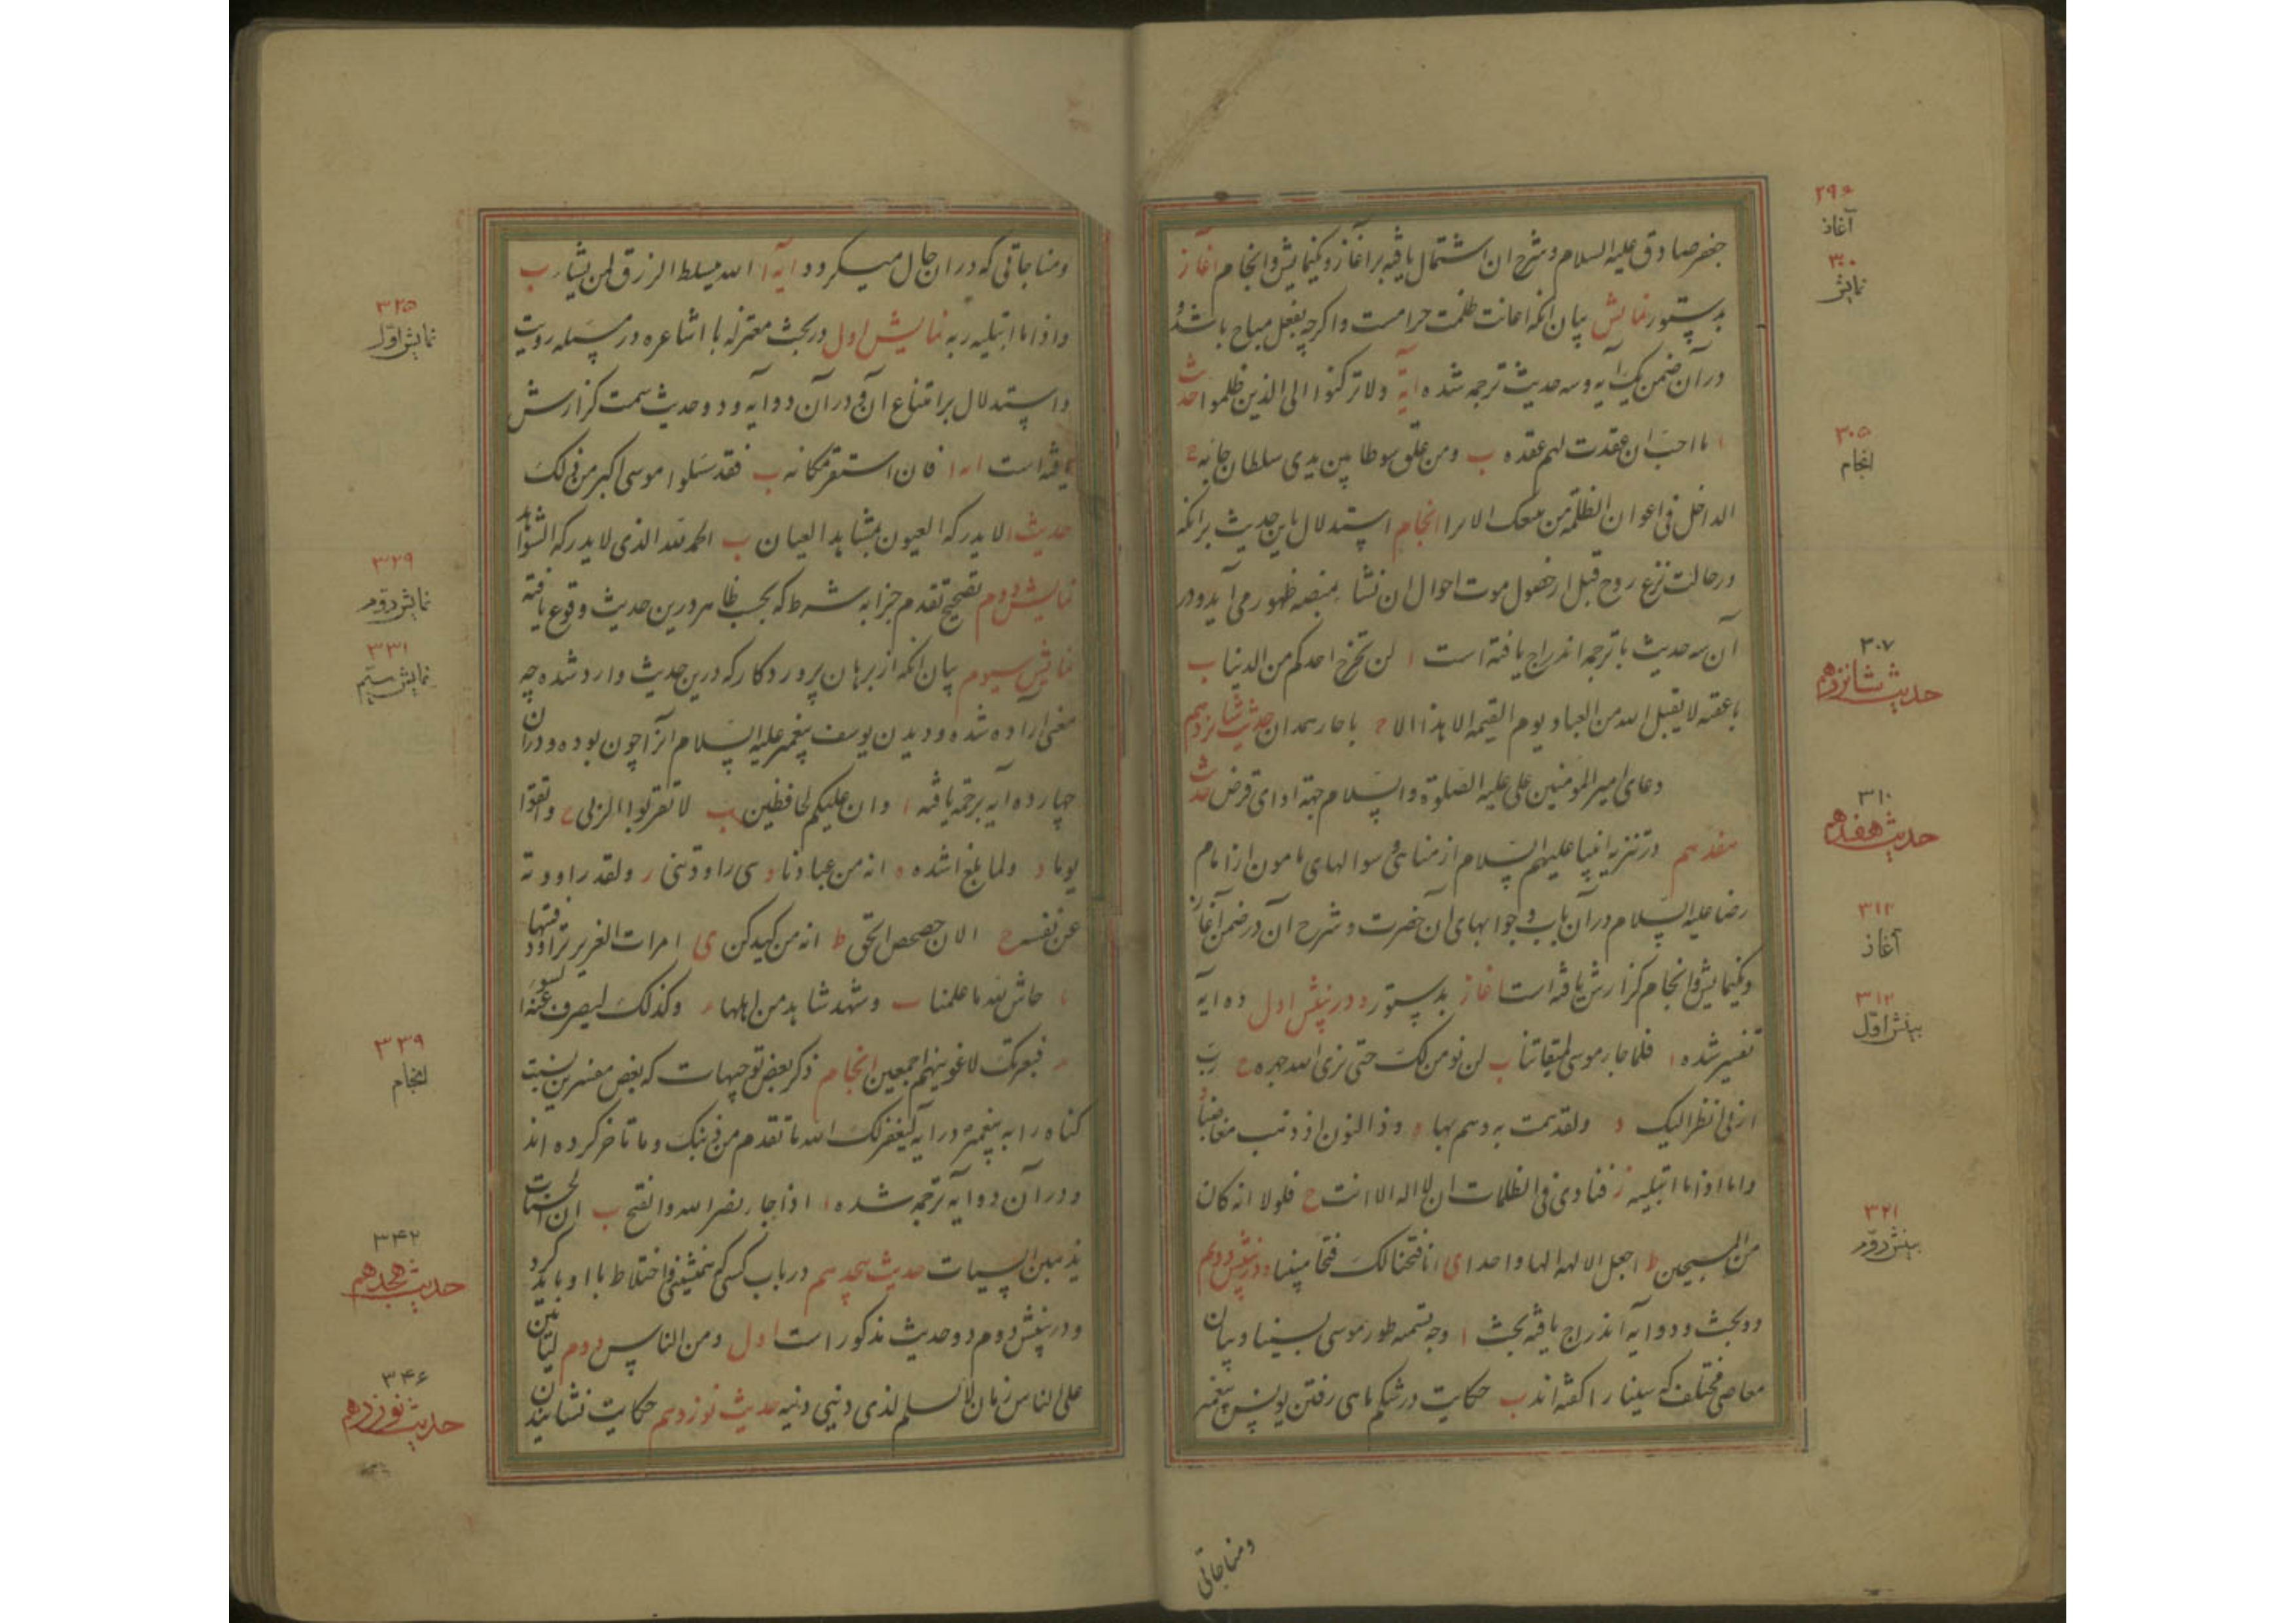 جعفر صادق علیه السلام و شرح ان اشتمال یافته بر آغاز و یکنمایش و انجام آغاز
بدستور نمایش بیان انکه اعانت ظلمت حرامست و اکرچه بفعل مباح باشد و
در آن ضمن یک آیه و سه حدیث ترجمه شده آیة ولا ترکنوا الی الذین ظلموا حدیث
ا ما احبّ ان عقدت لهم عقده ب ومن علق سوطا بین یدی سلطان جائه ج
الداخل فی اعوان الظلمة انجام استدلال باین حدیث برانکه
در حالت نزع روح قبل از حصول موت احوال ان نشا بمنصه ظهور می آید و در
آن سه حدیث با ترجمه اندراج یافته است ا لن تخرج احدکم من الدنیا ب
یا عقبه لا یقبل الله من العباد یوم القیمه الا هذا الا ج یا حار همدان حدیث شانزدهم
دعای امیر المومنین علی علیه الصلوة والسلام جهة ادای قرض حدیث
هفدهم در تنزیه انبیا علیهم السلام از مناهی و سوالهای مامون از امام
رضا علیه السلام در آن باب و جوابهای آن حضرت و شرح آن در ضمن آغاز
و یکنمایش و انجام کزارش یافته است آغاز بدستور و در بینش اول ده ایه
تفسیر شده ا فلما جاء موسی لمیقاتنا ب لن نومن لک حتی نری الله جهره ج ربّ
ارنی انظر الیک د ولقد همت به وهم بها ه وذا النون اذ ذهب مغاضبا و
واما اذا ما ابتلیه ز فنادی فی الظلمات ان لا اله الا انت ح فلولا انه کان
من المسبحین ط اجعل الالهه الها واحدا ی انا فتحنا لک فتحا مبینا و در بینش دویم
دو بحث و دو ایه اندراج یافته بحث ا وجه تسمیه طور موسی بسینا و بیان
معاصی مختلف که سینا را کفته اند ب حکایت در شکم ماهی رفتن یونس پیغمبر
ومناجاتی
۲۹۶
آغاز
۳۰۰
نمایش
۳۰۵
انجام
۳۰۷
حدیث شانزدهم
۳۱۰
حدیث هفدهم
۳۱۲
آغاز
۳۱۲
بینش اوّل
۳۲۱
بینش دوّم
ومناجاتی که در ان حال میکرد و ایة ا الله یبسط الرزق لمن یشاء ب
واذا ما ابتلیه ربه نمایش اول در بحث معتزله با اشاعره در مسئله رویت
و استدلال بر امتناع آن و در آن دو ایه و دو حدیث سمت کزارش
یافته است ایه ا فان استقر مکانه ب فقد سئلوا موسی اکبر من ذلک
حدیث ا لا یدرکه العیون بمشاهد العیان ب الحمد لله الذی لا یدرکه الشواهد
نمایش دوم تصحیح تقدم جزا به شرط که بحسب ظاهر درین حدیث وقوع یافته
نمایش سیوم بیان انکه از برهان پروردکار که درین حدیث وارد شده چه
معنی اراده شده و دیدن یوسف پیغمبر علیه السلام انرا چون بوده و در ان
چهارده آیه برجمه یافته ا وان علیکم لحافظین ب لا تقربوا الزنی ج واتقوا
یوما د ولما بلغ اشده ه انه من عبادنا و هی راودتنی ز ولقد راودته
عن نفسه ح الان حصحص الحق ط انه من کیدکن ی امرات العزیز تراود فتیها
یا حاش لله ما علمنا یب وشهد شاهد من اهلها یج وکذلک لیصرف عنه السوء
ید فبعزتک لاغوینهم اجمعین انجام ذکر بعض توجیهات که بعض مفسرین نسبت
کناه را به پیغمبر در آیه لیغفر لک الله ما تقدم من ذنبک وما تاخر کرده اند
و در آن دو ایه ترجمه شده ا اذا جاء نصر الله والفتح ب ان الحسنات
یذهبن السیات حدیث هجدهم در باب کسی که اختلاط با او باید کرد
و در بینش دوم دو حدیث مذکور است اول ومن الناس دوم لیاتین
علی الناس زمان لا یسلم لذی دینی دینه حدیث نوزدهم حکایت نشانیدن
۳۲۵
نمایش اوّل
۳۲۹
نمایش دوّم
۳۳۱
نمایش سیّم
۳۳۹
انجام
۳۴۲
حدیث هجدهم
۳۴۶
حدیث نوزدهم